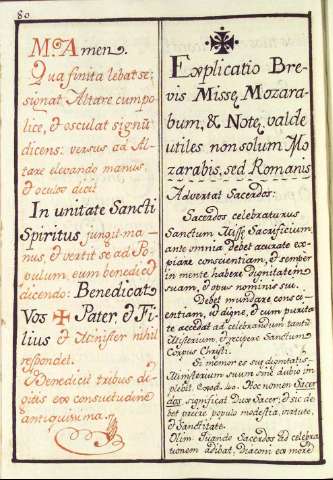 80
M. Amen.
Qua finita lebat se;
signat Altare cum po-
lice, & osculat signũ
dicens: versus ad Al-
tare elevando manus,
& oculos dicit
In unitate Sancti
Spiritus jungit ma-
nus, & vertit se ad Po-
pulum, eum benedicẽ
dicendo: Benedicat
Vos ✠ Pater, & Fi-
lius & Minister nihil
respondet.
Benedicit tribus di-
gitis ex consuetudine
antiquissima.
Explicatio Bre-
vis Missę Mozara-
bum, & Notę valde
utiles non solum Mo
zarabis, sed Romanis
Advertat Sacerdos:
Sacerdos celebraturus
Sanctum Missę Sacrificium
ante omnia Debet accurate ex-
piare conscientiam, & semper
in mente habere Dignitatem
suam, & opus nominis sui.
Debet mundare consci-
entiam, ut digne, & cum purita-
te accedat ad celebrandum tantũ
Misterium, & recipere Sanctum
Corpus Christi.
Si memor es suę dignitatis
Ministerium suum sine dubio im
plebit. Hoc nomen Sacer
dos significat Dux Sacer, & sic de
bet preire populo modestia, virtute,
& Sanctitate.
Olim Quando Sacerdos ad celebra
tionem adibat, Diaconi ex more